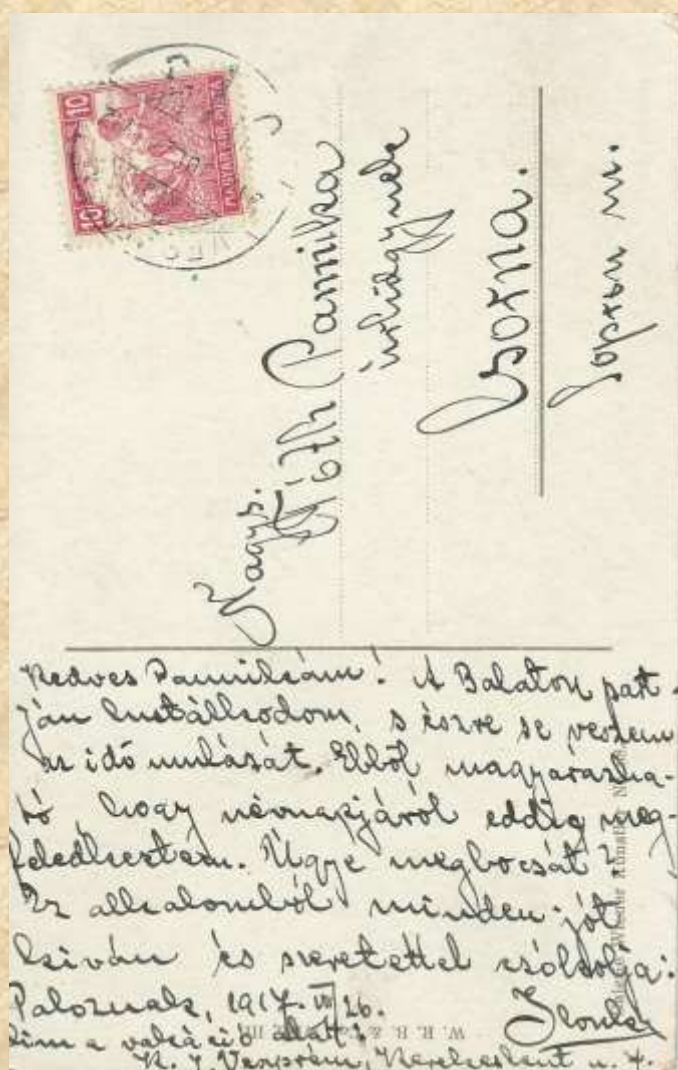 Nagys.
Tóth Pannika
úrhölgynek
Csorna.
Sopron m.
Kedves Pannikám! A Balaton part-
ján lustálkodom, s észre se veszem
az idő mulását. Ebből magyarázha-
tó, hogy névnapjáról eddig meg-
feledkeztem. Ugye megbocsát?
Ez alkalomból minden jót
kiván és szeretettel csókolja:
Paloznak, 1917. VII/26. Ilonka
Cim a vakáció alatt:
K. J. Veszprém, Kerekeskút u. 4.
10
10
MAGYAR KIR. POSTA
W. R. B. & Co.